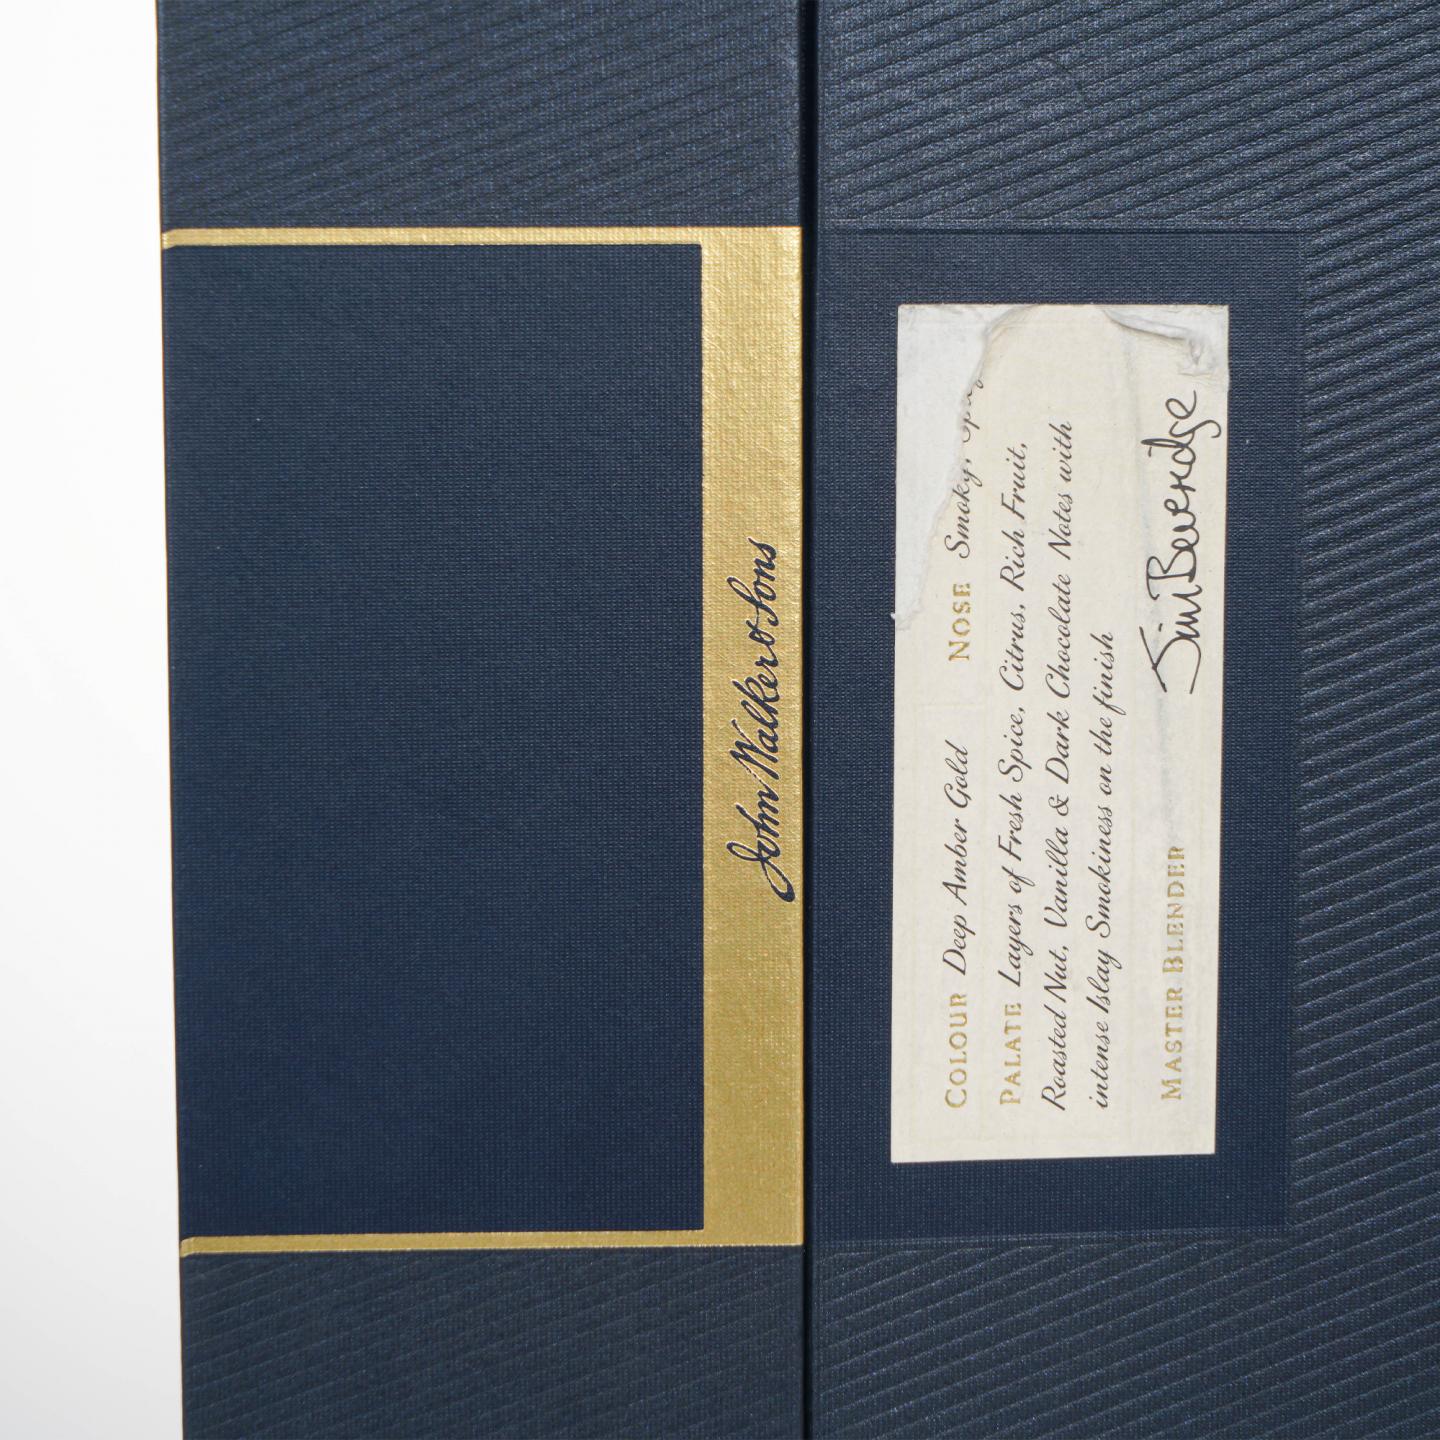 John Walker & Sons
COLOUR Deep Amber Gold NOSE Smoky,
PALATE Layers of Fresh Spice, Citrus, Rich Fruit,
Roasted Nut, Vanilla & Dark Chocolate Notes with
intense Islay Smokiness on the finish
MASTER BLENDER Jim Beveridge